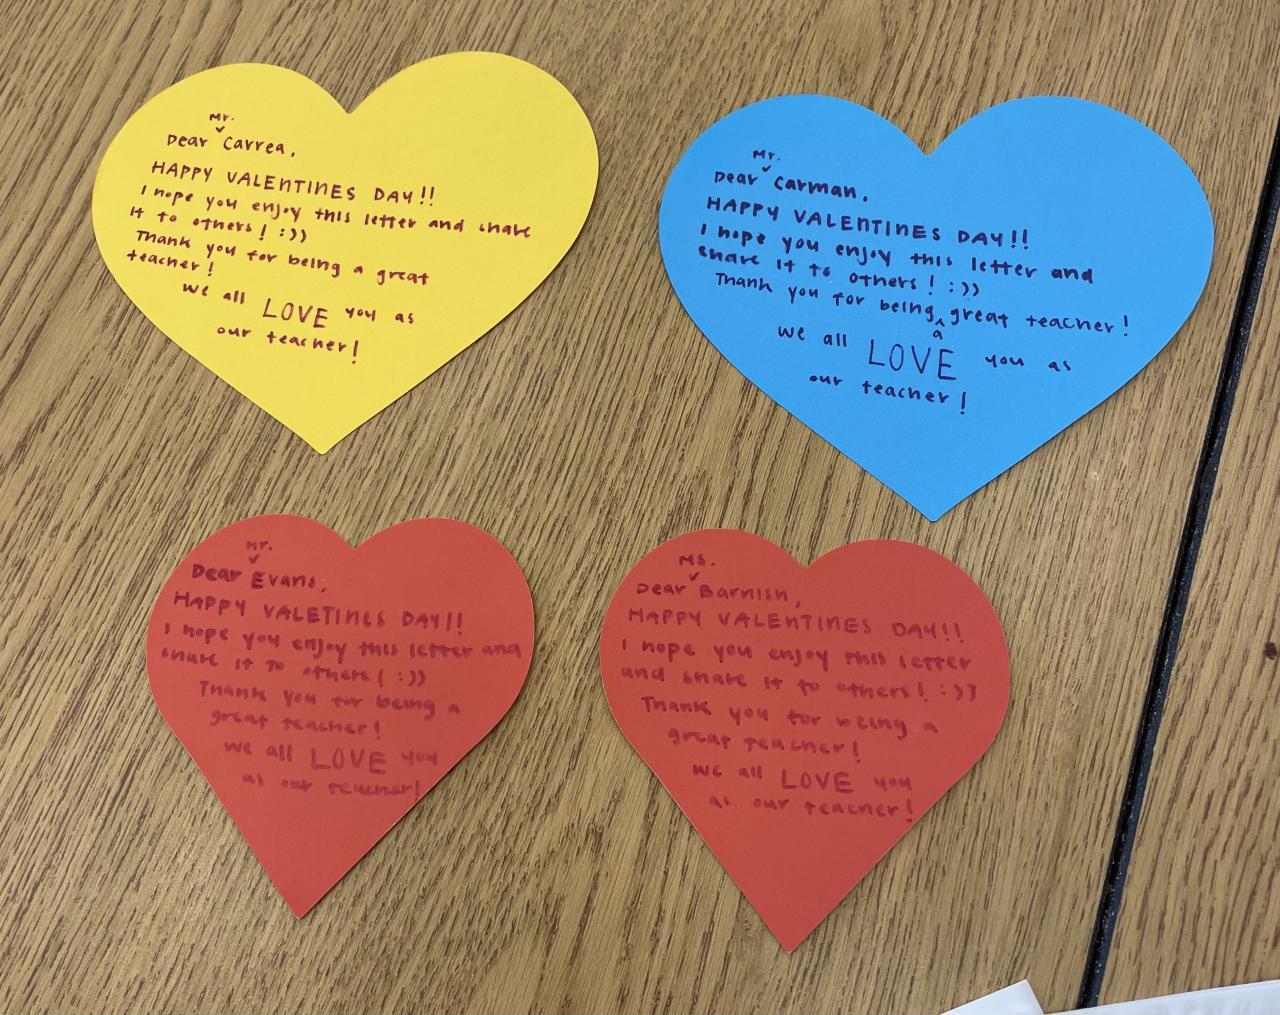 Mr.
Dear ✓ Carrea,
HAPPY VALENTINES DAY!!
I hope you enjoy this letter and share
it to others! :))
Thank you for being a great
teacher!
we all LOVE you as
our teacher!
Mr.
Dear ✓ Carman,
HAPPY VALENTINES DAY!!
I hope you enjoy this letter and
share it to others! :))
Thank you for being ^ great teacher!
a
we all LOVE you as
our teacher!
Mr.
Dear ✓ Evans,
HAPPY VALETINES DAY!!
I hope you enjoy this letter and
share it to others! :))
Thank you for being a
great teacher!
we all LOVE you
as our teacher!
Ms.
Dear ✓ Barnish,
HAPPY VALENTINES DAY!!
I hope you enjoy this letter
and share it to others! :))
Thank you for being a
great teacher!
we all LOVE you
as our teacher!